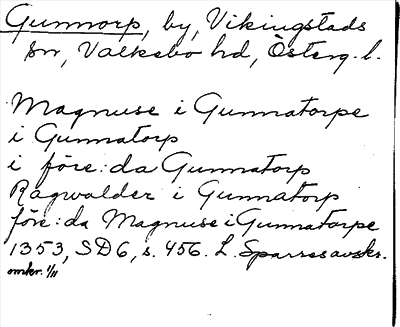 Gunnorp, by, Vikingstads
sn, Valkebo hd, Österg. l.
Magnuse i Gunnatorpe
i Gunnatorp
i före: da Gunnatorp
Ragwalder i Gunnatorp
före: da Magnuse i Gunnatorpe
1353, SD6, s. 456. L. Sparres avskr.
omkr. 1/11